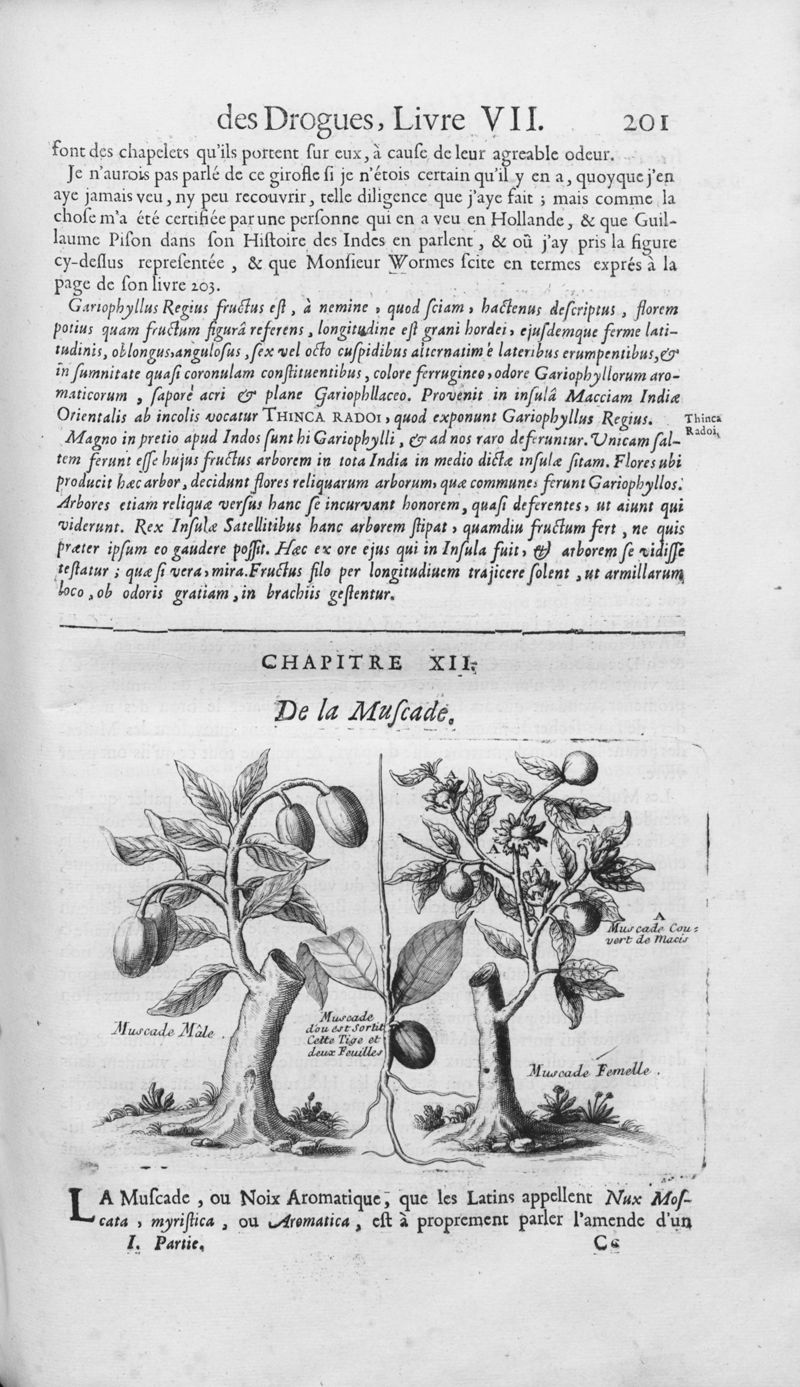 des Drogues, Livre VII. 201
font des chapelets qu'ils portent ſur eux, à cauſe de leur agreable odeur.
Je n'aurois pas parlé de ce girofle ſi je n'étois certain qu'il y en a, quoyque j'en
aye jamais veu, ny peu recouvrir, telle diligence que j'aye fait ; mais comme la
choſe m'a été certifiée par une perſonne qui en a veu en Hollande, & que Guil-
laume Piſon dans ſon Hiſtoire des Indes en parlent, & où j'ay pris la figure
cy-deſſus repreſentée, & que Monſieur Wormes ſcite en termes exprés à la
page de ſon livre 203.
Gariophyllus Regius fructus eſt, à nemine, quod ſciam, hactenus deſcriptus, florem
potius quam fructum figurâ referens, longitudine eſt grani hordei, ejuſdemque ferme lati-
tudinis, oblongus, anguloſus, ſex vel octo cuſpidibus alternatim è lateribus erumpentibus, &
in ſumnitate quaſi coronulam conſtituentibus, colore ferrugineo, odore Gariophyllorum aro-
maticorum, ſaporé acri & plane Gariophllaceo. Provenit in inſulâ Macciam Indiæ
Orientalis ab incolis vocatur THINCA RADOI, quod exponunt Gariophyllus Regius.
Thinca
Radoi.
Magno in pretio apud Indos ſunt hi Gariophylli, & ad nos raro deferuntur. Unicam ſal-
tem ferunt eſſe hujus fructus arborem in tota India in medio dictæ inſulæ ſitam. Flores ubi
producit hæc arbor, decidunt flores reliquarum arborum, quæ communes ferunt Gariophyllos.
Arbores etiam reliquæ verſus hanc ſe incurvant honorem, quaſi deferentes, ut aiunt qui
viderunt. Rex Inſulæ Satellitibus hanc arborem ſtipat, quamdiu fructum fert, ne quis
præter ipſum eo gaudere poſſit. Hæc ex ore ejus qui in Inſula fuit, & arborem ſe vidiſſe
teſtatur ; quæ ſi vera, mira. Fructus filo per longitudiuem trajicere ſolent, ut armillarum
loco, ob odoris gratiam, in brachiis geſtentur.
CHAPITRE XII.
De la Muſcade.
A
A
A
A
A
Muscade Cou:
vert de Macis
Muscade Mâle.
Muscade
d'ou est Sortit
Cette Tige et
deux Feuilles
Muscade Femelle.
LA Muſcade, ou Noix Aromatique, que les Latins appellent Nux Moſ-
cata, myriſtica, ou Aromatica, eſt à proprement parler l'amende d'un
I. Partie. Cc